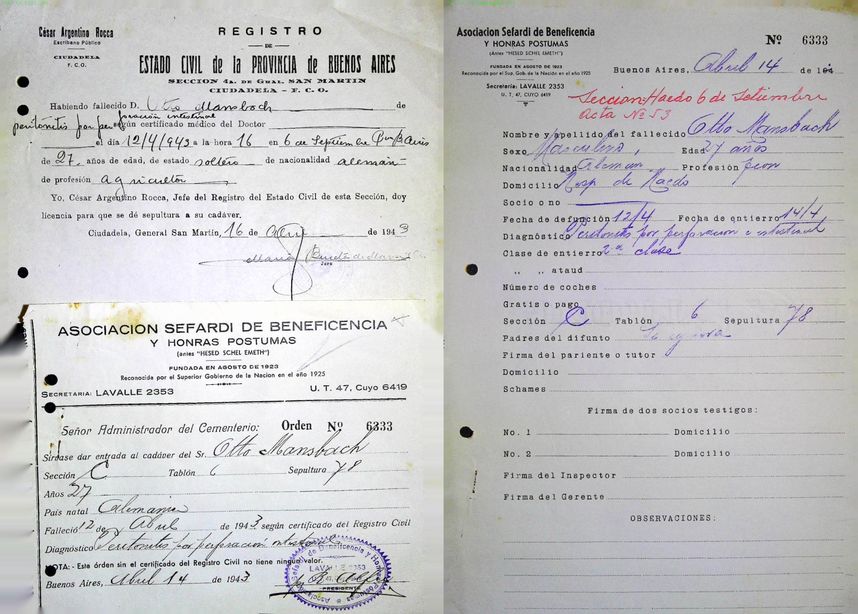 César Argentino Rocca
Escribano Público
CIUDADELA
F. C. O.
REGISTRO
DE
ESTADO CIVIL de la PROVINCIA de BUENOS AIRES
SECCION 4a. DE GRAL. SAN MARTIN
CIUDADELA - F. C. O.
Habiendo fallecido D. Otto Mansbach de
peritonitis por perforación intestinal según certificado médico del Doctor
el día 12/4/943 a la hora 16 en 6 de Septiembre Bs Aires
de 27 años de edad, de estado soltero de nacionalidad alemán
de profesión agricultor
Yo, César Argentino Rocca, Jefe del Registro del Estado Civil de esta Sección, doy
licencia para que se dé sepultura a su cadáver.
Ciudadela, General San Martín, 16 de Abril de 1943
ASOCIACION SEFARDI DE BENEFICENCIA
Y HONRAS POSTUMAS
(antes "HESED SCHEL EMETH")
FUNDADA EN AGOSTO DE 1923
Reconocida por el Superior Gobierno de la Nacion en el año 1925
SECRETARIA: LAVALLE 2353
U. T. 47, Cuyo 6419
Señor Administrador del Cementerio:
Orden Nº 6333
Sírdase dar entrada al cadáver del Sr. Otto Mansbach
Sección C Tablón 6 Sepultura 78
Años 27
País natal Alemania
Falleció 12 de Abril de 1943 según certificado del Registro Civil
Diagnóstico Peritonitis por perforacion intestinal
NOTA: - Este órden sin el certificado del Registro Civil no tiene ningún valor.
Buenos Aires, Abril 14 de 1943
Sefardi de Beneficencia y Honras Postumas
LAVALLE 2353
PRESIDENTE
Asociacion Sefardi de Beneficencia
Y HONRAS POSTUMAS
(Antes "HESED SCHEL EMETH")
FUNDADA EN AGOSTO DE 1923
Reconocida por el Sup. Gob. de la Nación en el año 1925
Secretaría: LAVALLE 2353
U. T. 47, CUYO 6419
Nº 6333
Buenos Aires, Abril 14 de 194
Seccion Haedo 6 de Setiembre
Acta Nº 53
Nombre y apellido del fallecido Otto Mansbach
Sexo Masculino, Edad 27 años
Nacionalidad Aleman Profesión peon
Domicilio Hosp de Haedo
Socio o no
Fecha de defunción 12/4 Fecha de entierro 14/4
Diagnóstico Peritonitis por perforacion e intestinal
Clase de entierro 2ª clase
„ „ ataud
Número de coches
Gratis o pago
Sección C Tablón 6 Sepultura 78
Padres del difunto Se ignora
Firma del pariente o tutor
Domicilio
Schames
Firma de dos socios testigos:
No. 1 Domicilio
No. 2 Domicilio
Firma del Inspector
Firma del Gerente
OBSERVACIONES: